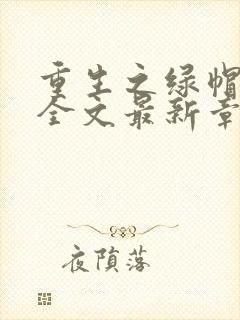 重生之绿帽
全文最新章
夜陨落